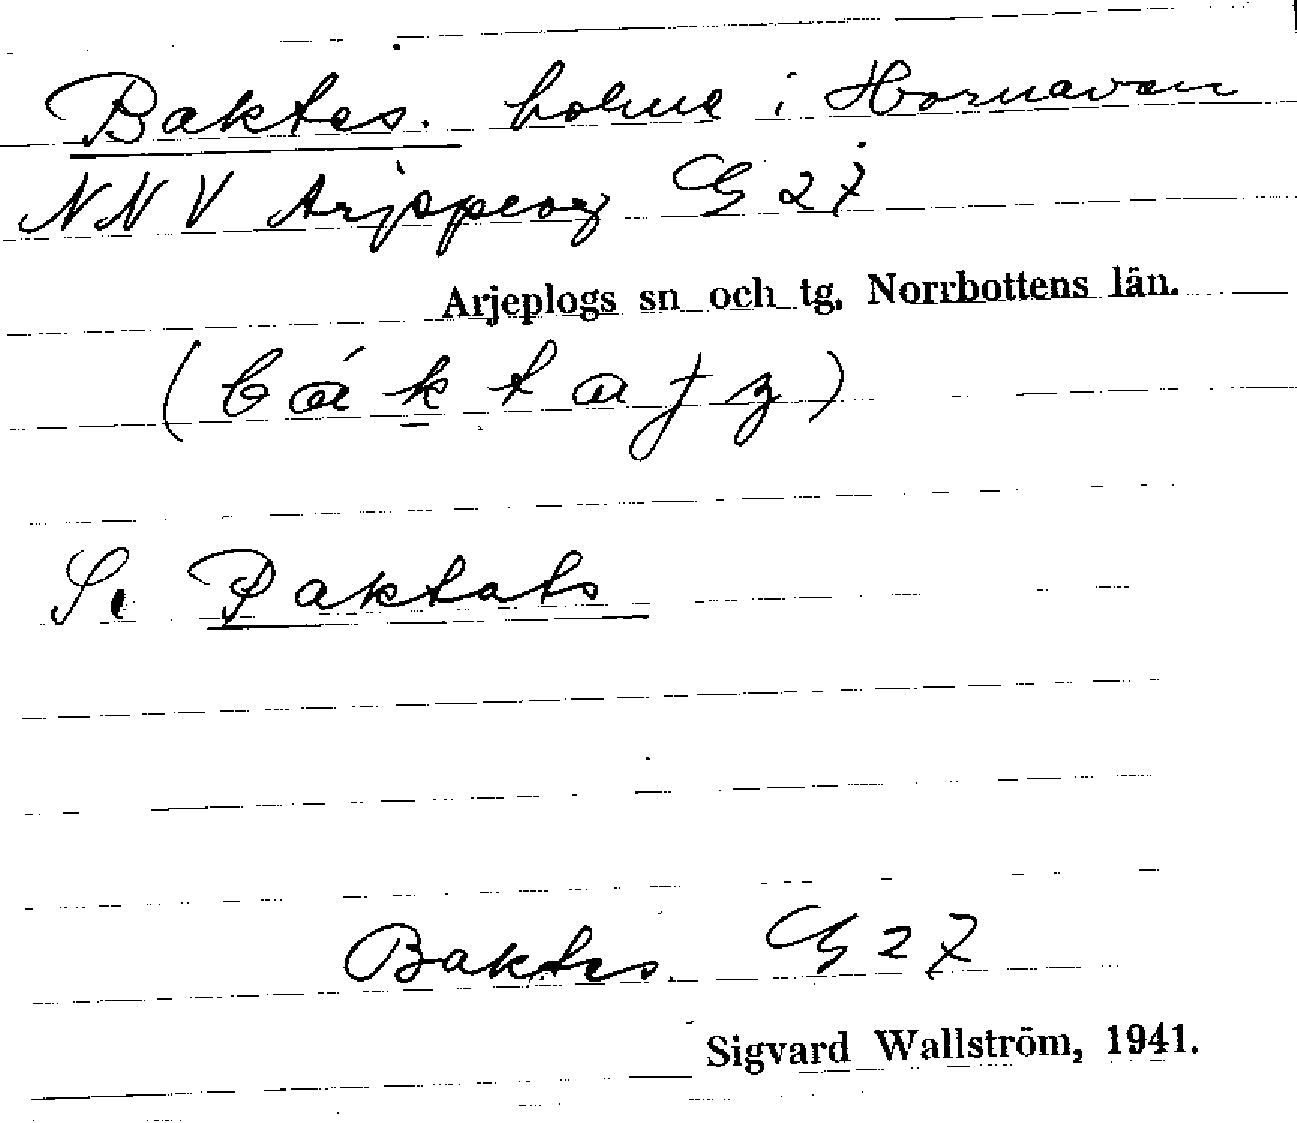 Baktes. holme i Hornavan
NNV Arjeplog G 27
Arjeplogs sn och tg, Norrbottens län.
(báktatʒ)
Se Paktats
Baktes. G 27
Sigvard Wallström, 1941.